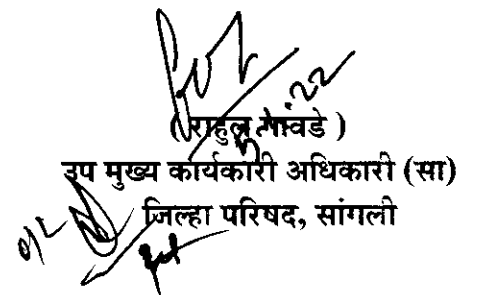 ( राहुल गावडे )
उप मुख्य कार्यकारी अधिकारी (सा)
जिल्हा परिषद, सांगली